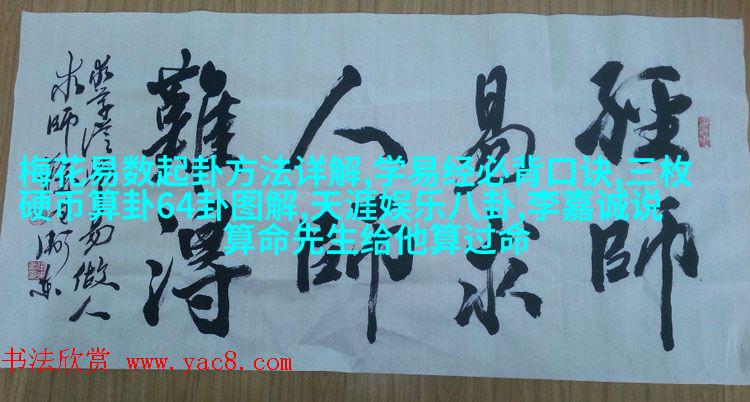 經師
易求
人師
難得
梅花易数起卦方法详解,学易经必背口诀,三枚
硬币算卦64卦图解,天涯娱乐八卦,李嘉诚说
算命先生给他算过命
书法欣赏 www.yac8.com